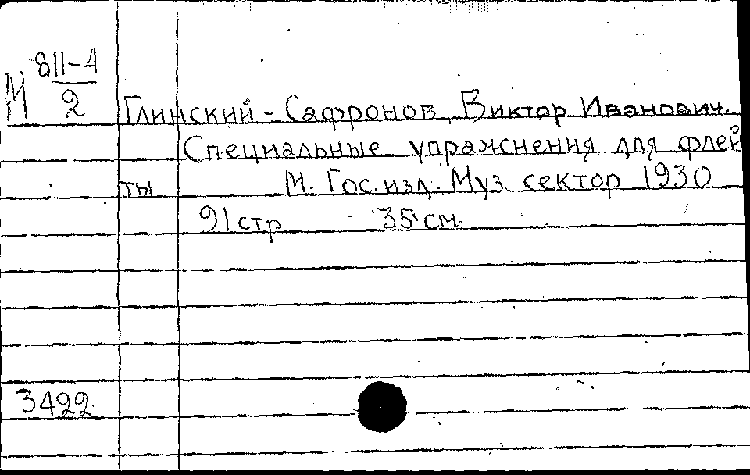 М 811-4
2
Глинский - Сафронов, Виктор Иванович.
Специальные упражнения для флей
ты М. Гос. изд. Муз. сектор 1930
91 стр 35 см.
3422